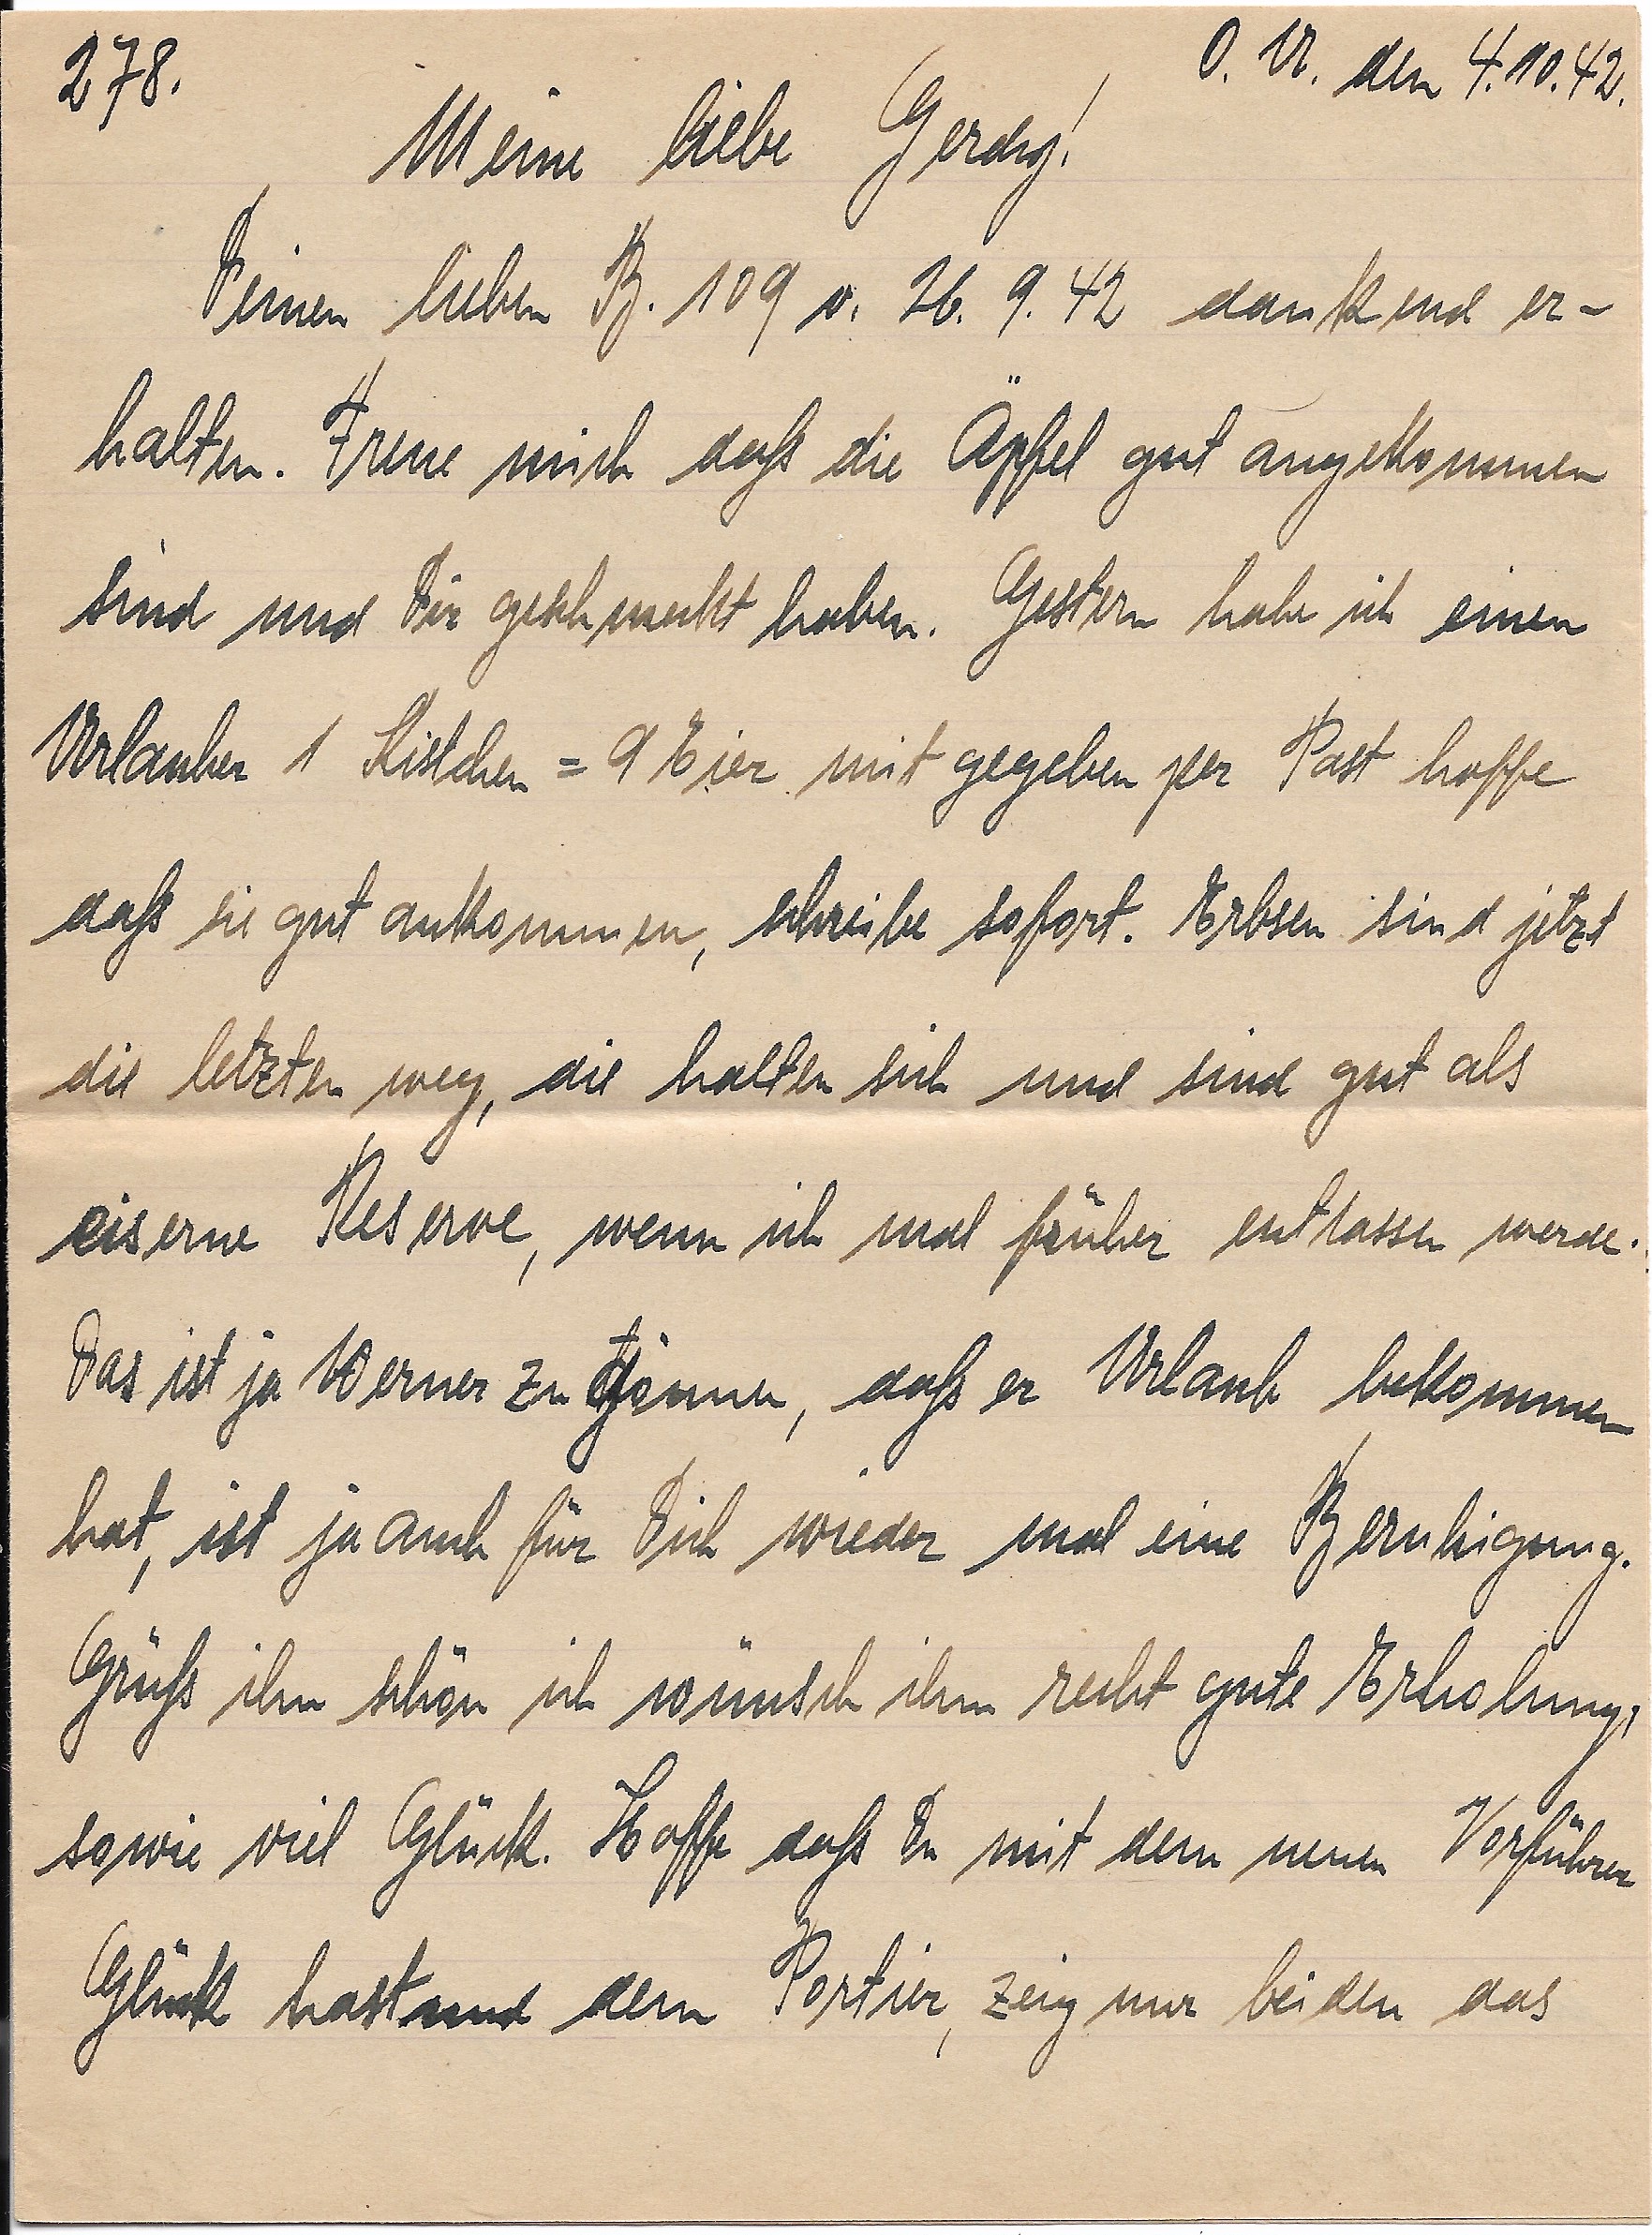 278.
O. U. den 4.10.42.
Meine liebe Gerdy!
Deinen lieben B. 109 v. 26. 9. 42 dankend er-
halten. Freue mich daß die Äpfel gut angekommen
sind und Dir geschmeckt haben. Gestern habe ich einen
Urlauber 1 Kistchen = 9 Eier mitgegeben per Post hoffe
daß sie gut ankommen, schreibe sofort. Erbsen sind jetzt
die letzten weg, die halten sich und sind gut als
eiserne Reserve, wenn ich mal früher entlassen werde.
Das ist ja Werner zu gönnen, daß er Urlaub bekommen
hat, ist ja auch für Dich wieder mal eine Beruhigung.
Grüß ihn schön ich wünsch ihm recht gute Erholung,
sowie viel Glück. Hoffe daß Du mit dem neuen Vorführer
Glück hast und dem Portier, zeig nur beiden das